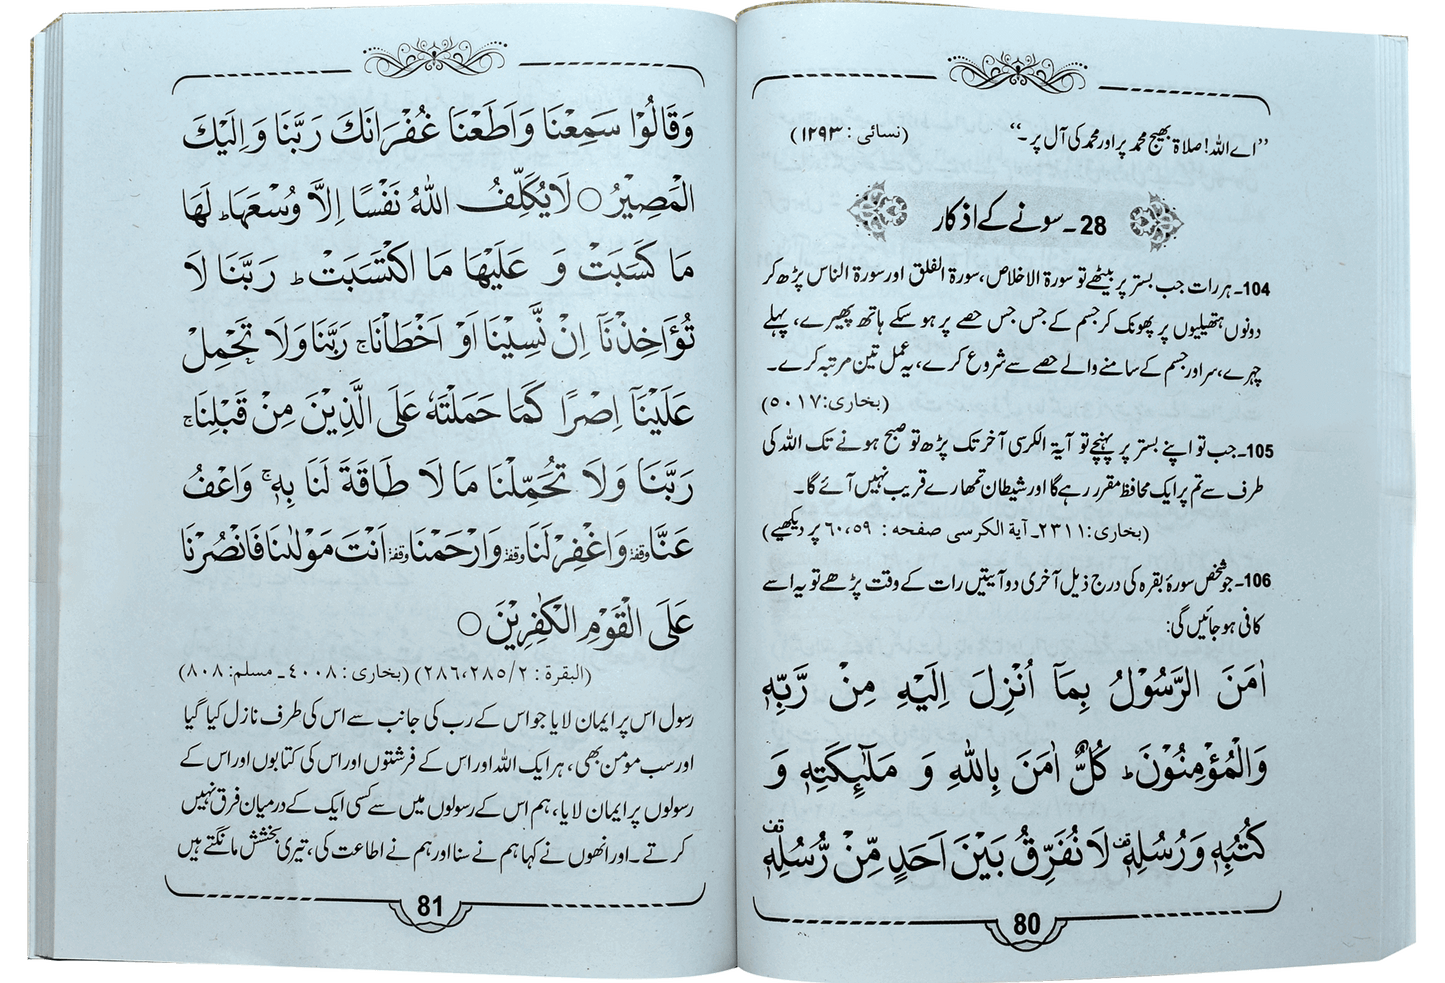 ”اے اللہ! صلاۃ بھیج محمد پر اور محمد کی آل پر۔“ (نسائی : ۱۲۹۳)
28۔ سونے کے اذکار
104۔ ہر رات جب بستر پر بیٹھے تو سورۃ الاخلاص، سورۃ الفلق اور سورۃ الناس پڑھ کر
دونوں ہتھیلیوں پر پھونک کر جسم کے جس جس حصے پر ہو سکے ہاتھ پھیرے، پہلے
چہرے، سر اور جسم کے سامنے والے حصے سے شروع کرے، یہ عمل تین مرتبہ کرے۔
(بخاری: ۵۰۱۷)
105۔ جب تو اپنے بستر پر پہنچے تو آیۃ الکرسی آخر تک پڑھ تو صبح ہونے تک اللہ کی
طرف سے تم پر ایک محافظ مقرر رہے گا اور شیطان تمھارے قریب نہیں آئے گا۔
(بخاری: ۲۳۱۱۔ آیة الکرسی صفحه : ۶۰،۵۹ پر دیکھیے)
106۔ جو شخص سورۂ بقرہ کی درج ذیل آخری دو آیتیں رات کے وقت پڑھے تو یہ اسے
کافی ہو جائیں گی:
اٰمَنَ الرَّسُوْلُ بِمَاۤ اُنْزِلَ اِلَيْهِ مِنْ رَّبِّهٖ
وَالْمُؤْمِنُوْنَ ؕ كُلٌّ اٰمَنَ بِاللّٰهِ وَ مَلٰٓىِٕكَتِهٖ وَ
كُتُبِهٖ وَرُسُلِهٖ ۫ لَا نُفَرِّقُ بَيْنَ اَحَدٍ مِّنْ رُّسُلِهٖ ۫
80
وَقَالُوْا سَمِعْنَا وَاَطَعْنَا غُفْرَانَكَ رَبَّنَا وَاِلَيْكَ
الْمَصِيْرُ ○ لَا يُكَلِّفُ اللّٰهُ نَفْسًا اِلَّا وُسْعَهَا ؕ لَهَا
مَا كَسَبَتْ وَ عَلَيْهَا مَا اكْتَسَبَتْ ؕ رَبَّنَا لَا
تُؤَاخِذْنَاۤ اِنْ نَّسِيْنَاۤ اَوْ اَخْطَاْنَا ۚ رَبَّنَا وَلَا تَحْمِلْ
عَلَيْنَاۤ اِصْرًا كَمَا حَمَلْتَهٗ عَلَى الَّذِيْنَ مِنْ قَبْلِنَا ۚ
رَبَّنَا وَلَا تُحَمِّلْنَا مَا لَا طَاقَةَ لَنَا بِهٖ ۚ وَاعْفُ
عَنَّا وقفة وَاغْفِرْ لَنَا وقفة وَارْحَمْنَا وقفة اَنْتَ مَوْلٰىنَا فَانْصُرْنَا
عَلَى الْقَوْمِ الْكٰفِرِيْنَ ○
(البقرة : ۲/ ۲۸۶،۲۸۵) (بخاری : ۴۰۰۸ ۔ مسلم: ۸۰۸)
رسول اس پر ایمان لایا جو اس کے رب کی جانب سے اس کی طرف نازل کیا گیا
اور سب مومن بھی، ہر ایک اللہ اور اس کے فرشتوں اور اس کی کتابوں اور اس کے
رسولوں پر ایمان لایا، ہم اس کے رسولوں میں سے کسی ایک کے درمیان فرق نہیں
کرتے۔ اور انھوں نے کہا ہم نے سنا اور ہم نے اطاعت کی، تیری بخشش مانگتے ہیں
81